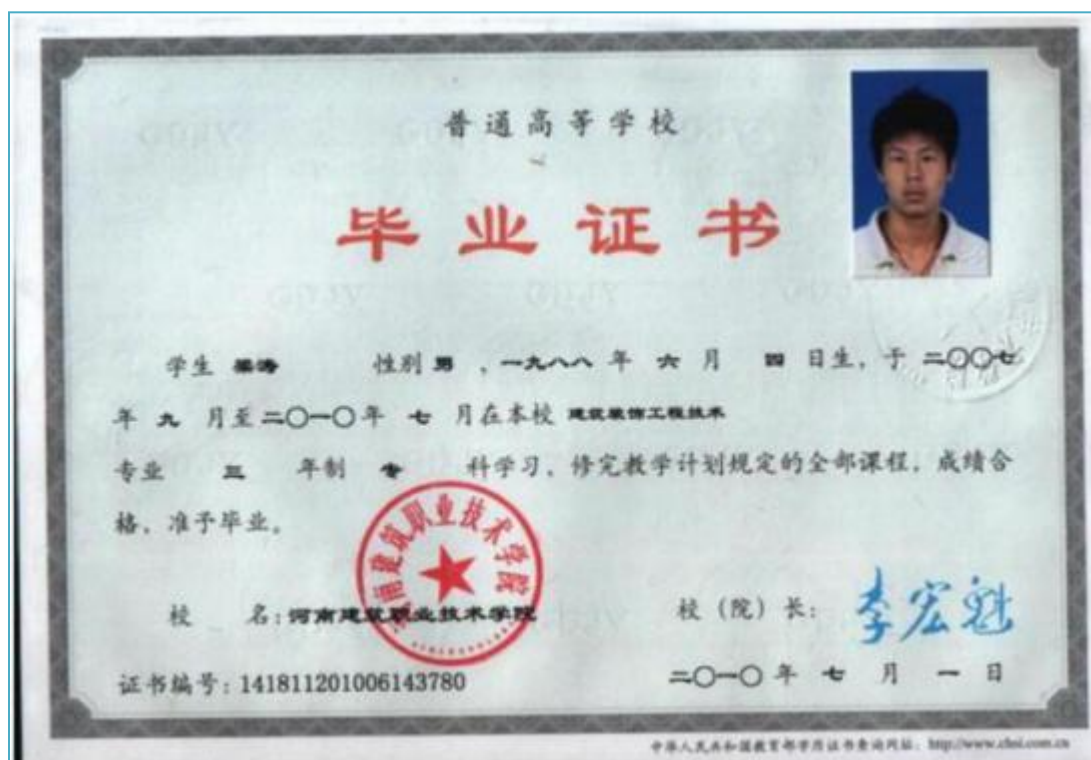 普通高等学校
毕业证书
学生 梁涛 性别 男 ，一九八八 年 六 月 四 日生，于 二〇〇七
年 九 月至二〇一〇年 七 月在本校 建筑装饰工程技术
专业 三 年制 专 科学习，修完教学计划规定的全部课程，成绩合
格，准予毕业。
河南建筑职业技术学院
校 名：河南建筑职业技术学院
校（院）长：李宏魁
证书编号：141811201006143780
二〇一〇 年 七 月 一 日
中华人民共和国教育部学历证书查询网址：http://www.chsi.com.cn